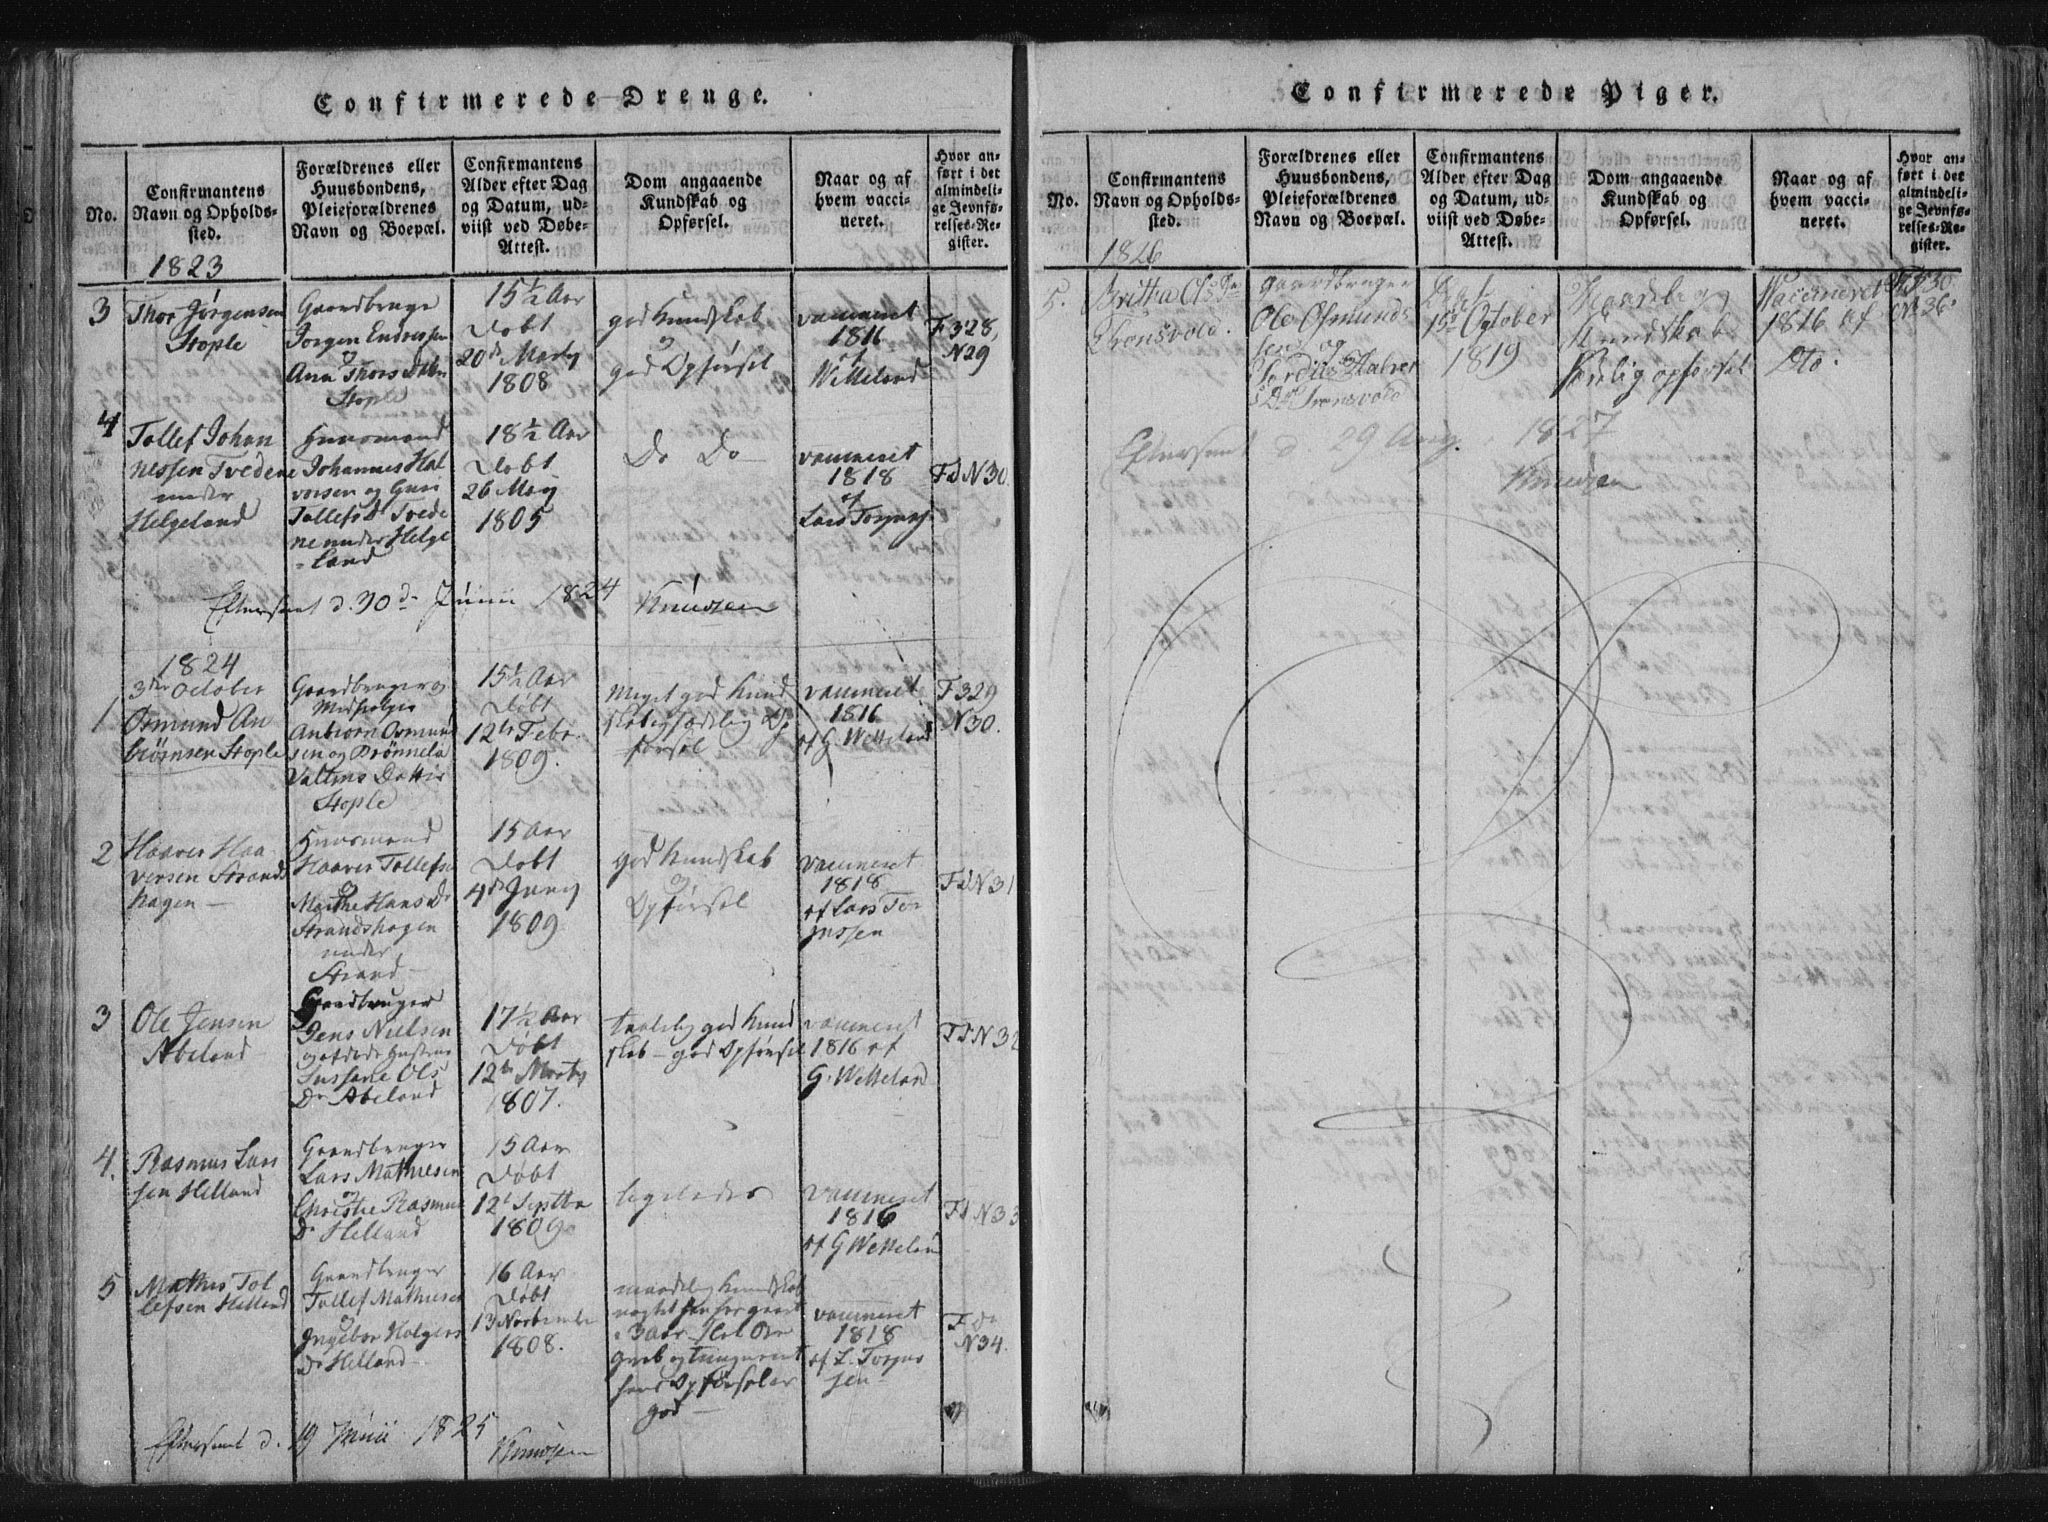 Confirmerede Drenge.
No.
Confirmantens
Navn og Opholds-
sted.
Forældrenes eller
Huusbondens,
Pleieforældrenes
Navn og Boepæl.
Confirmantens
Alder efter Dag
og Datum, ud-
viist ved Døbe-
Attest.
Dom angaaende
Kundskab og
Opførsel.
Naar og af
hvem vacci-
neret.
Hvor an-
ført i det
almindeli-
ge Jevnfø-
relses-Re-
gister.
1823
3
Thor Jørgensen
Stople
Gaardbruge
Jørgen Endressen
og
Ana Thors Dttr
Stople
15½ Aar
Døbt
20de Marty
1808
god Kundskab
og
god Opførsel
vacineret
1816
af
Wetteland
F 328,
N29
4
Tollef Johan
nessen Tvedene
under
Helgeland
Huusmand
Johannes Hal
vorsen og Guri
Tollefsd Tvede
ne under Helge
land
18½ Aar
Døbt
26 May
1805
Do Do
vacineret
1818
af
Lars Torgersen
Fd N30
Efterseet d. 30de Junii 1824 Knudsen
1824
3die October
1
Osmund An
biørnsen Stople
Gaardbruger og
Medhielper
Anbiørn Osmund
sen og Brønnela
Valtins Datter
Stople
15½ Aar
Døbt
12te Febr.
1809.
Meget god Kund
skab og sædelig Op
førsel
vacineret
1816
af G Wetteland
F 329
N30.
2
Haaver Haa
versen Strands
hagen
Huusmand
Haaver Tollefsen
og
Marthe Hans Dr
Strandshagen
under
Strand
15 Aar
Døbt
4de Juny
1809
god Kundskab
og
Opførsel
vacineret
1818
af Lars Tor
gersen
Fd N31
3
Ole Jensen
Abeland
Gaardbruger
Jens Nielsen
og afdøde Hustrue
Sussane Ols
Dr Abeland
17½ Aar
Døbt
12te Marty
1807.
taalelig god Kund
skab - god Opførsel
vacineret
1816 af
G. Wetteland
Fd N32
4.
Rasmus Lars
sen Helland
Gaardbruger
Lars Mathiesen
og
Christie Rasmus
Dr Helland
15 Aar
Døbt
12te Septbr
1809
ligeledes
vacineret
1816
af G Wetteland
Fd N33
5
Mathis Tol
lefsen Helland
Gaardbruger
Tollef Mathiesen
og
Ingebor Holgers
Dr Helland
16 Aar
Døbt
13 November
1808.
maadelig Kundskab
3 Aar
hans Opførsel er
god
vacineret
1818
af L. Torger
sen
F do
N34.
Efterseet d. 19 Junii 1825 Knudsen
Confirmerede Piger.
No.
Confirmantens
Navn og Opholds-
sted.
Forældrenes eller
Huusbondens,
Pleieforældrenes
Navn og Boepæl.
Confirmantens
Alder efter Dag
og Datum, ud-
viist ved Døbe-
Attest.
Dom angaaende
Kundskab og
Opførsel.
Naar og af
hvem vacci-
neret.
Hvor an-
ført i det
almindeli-
ge Jevnfø-
relses-Re-
gister.
1826
5.
Britta Ols Da
Tronsvold.
Gaardbruger
Ole Osmunds
sen og
Halver
s Dr Tronsvold
Døbt
15de October
1819
Kundskab
opførsel
Vaccineret
1816 af
Dto.
F 330
No 36
Efterseet d 29 Aug. 1827
Knudsen